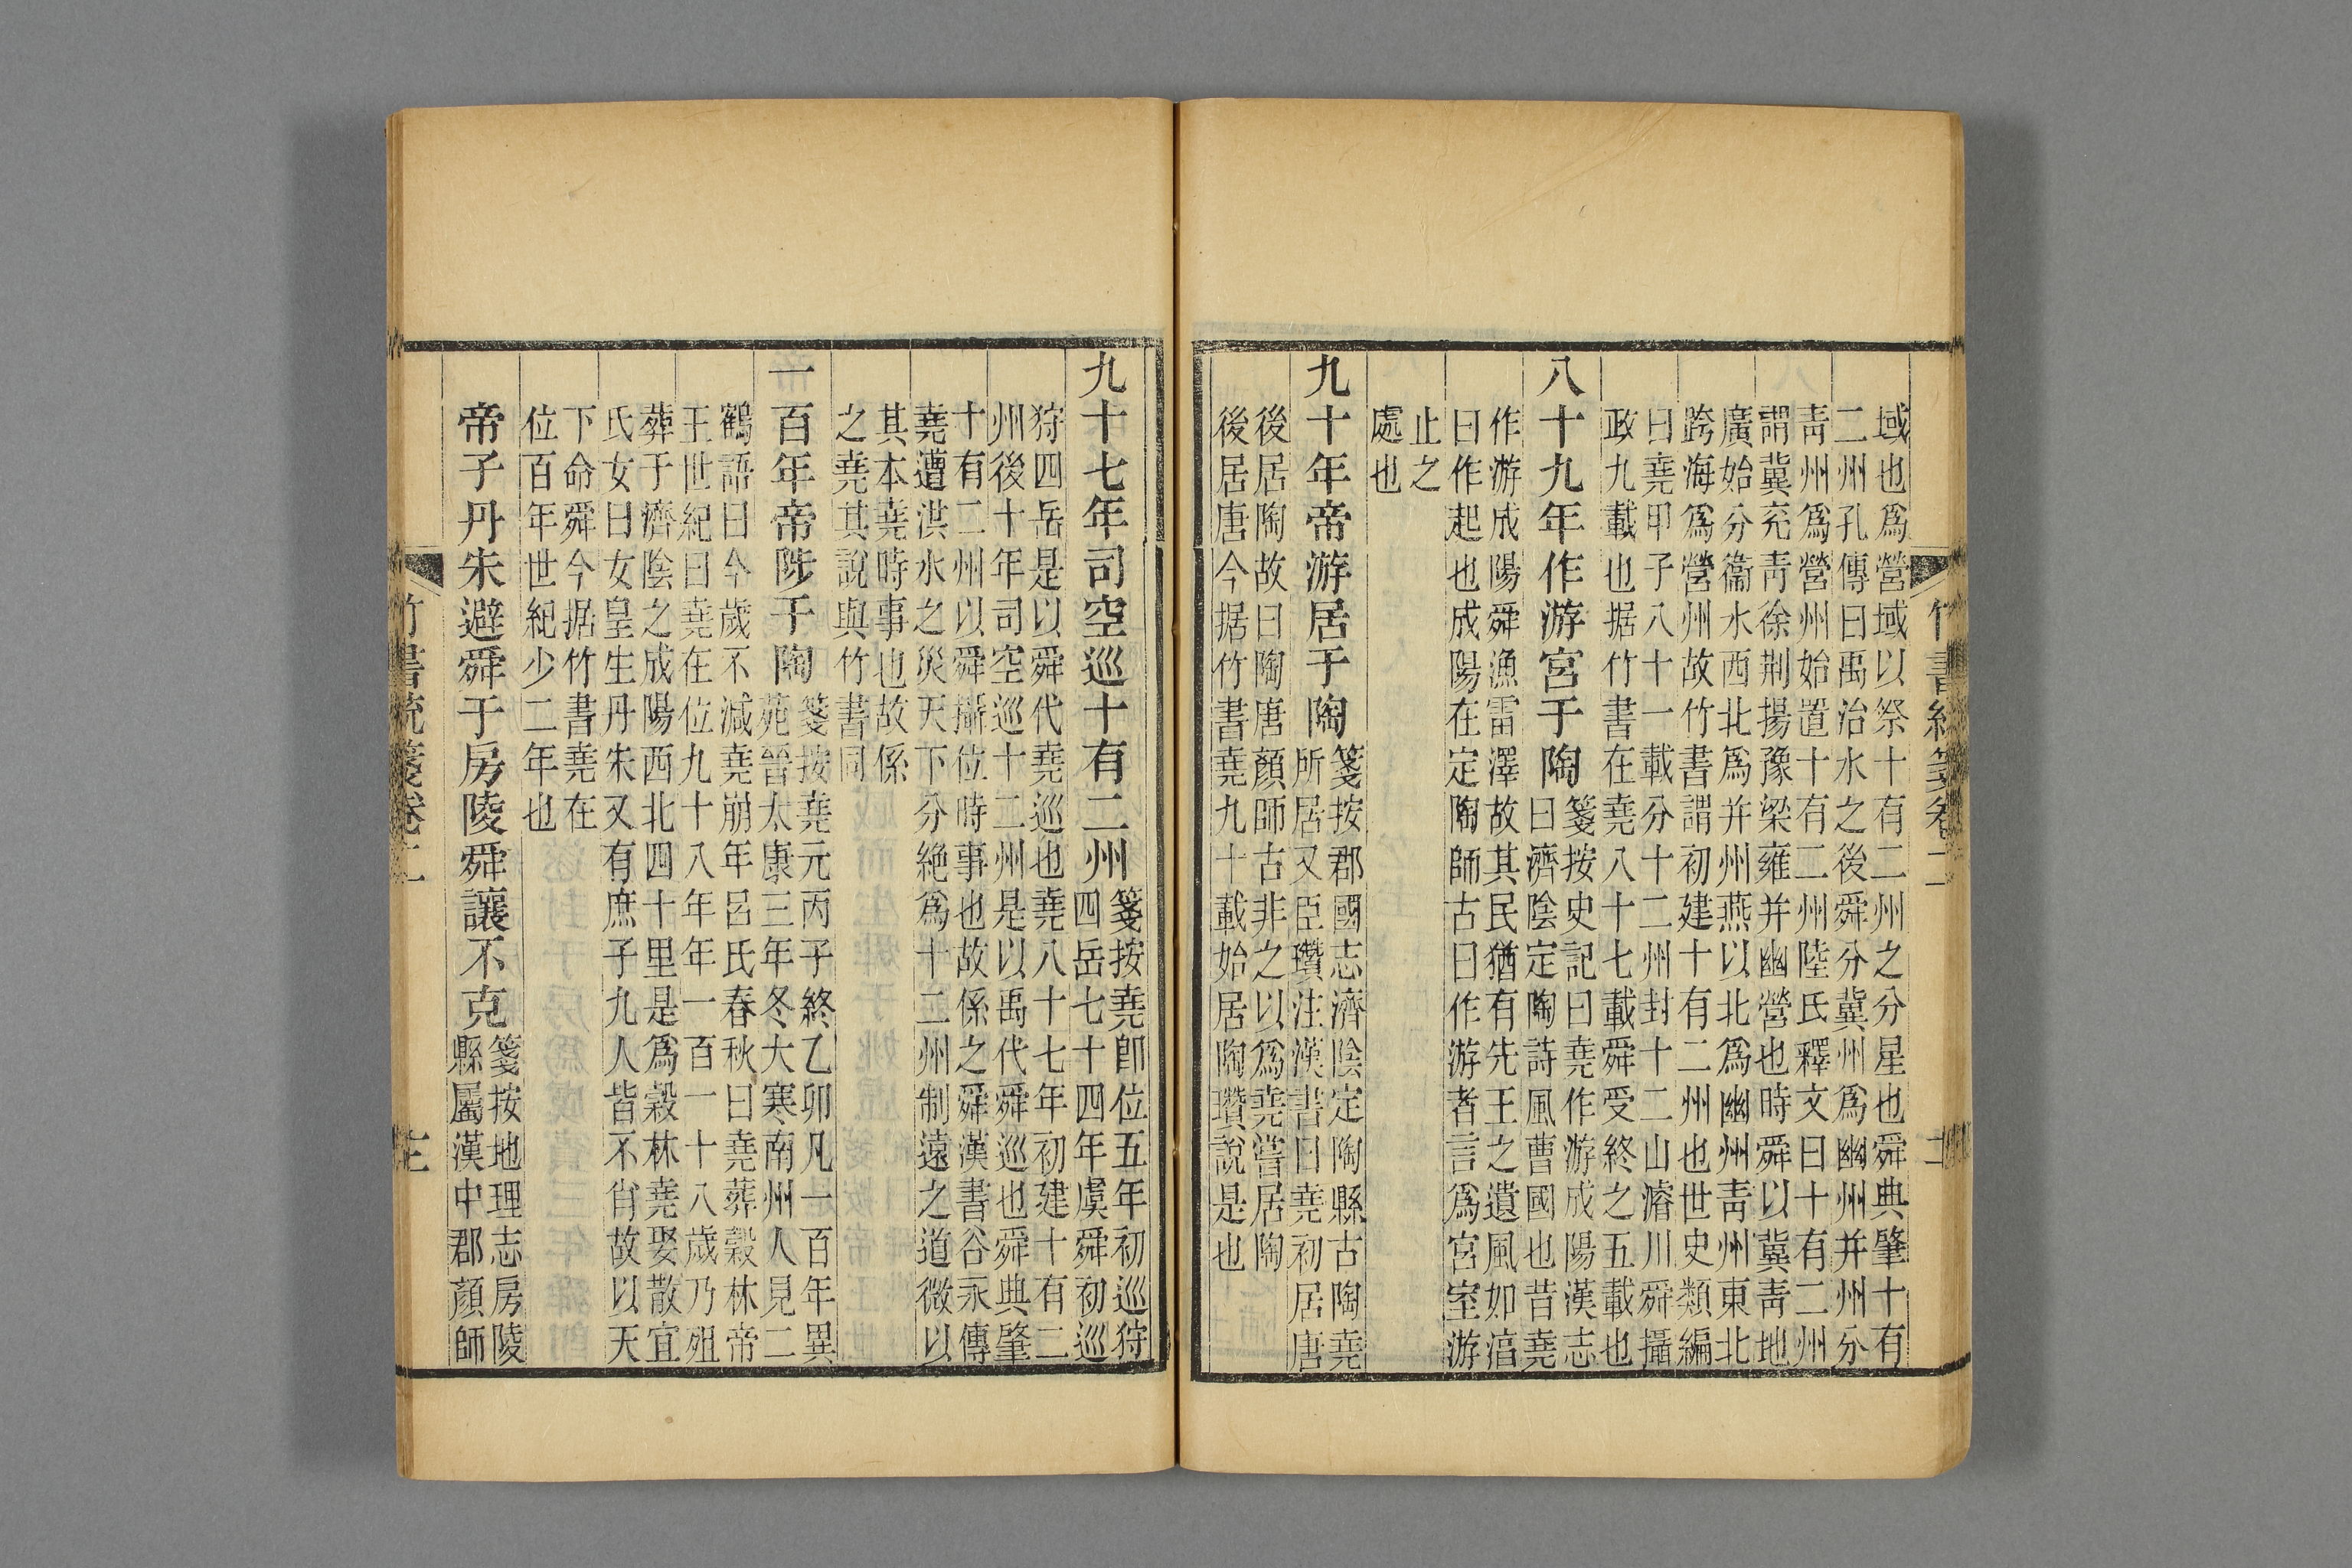 竹書統箋卷二
域也爲營域以祭十有二州之分星也舜典肇十有
二州孔傳曰禹治水之後舜分冀州爲幽州并州分
青州爲營州始置十有二州陸氏釋文曰十有二州
謂冀兖青徐荆揚豫梁雍并幽營也時舜以冀青地
廣始分衞水西北爲并州燕以北爲幽州青州東北
跨海爲營州故竹書謂初建十有二州也世史類編
曰堯甲子八十一載分十二州封十二山濬川舜攝
政九載也据竹書在堯八十七載舜受終之五載也
八十九年作游宮于陶
箋按史記曰堯作游成陽漢志
曰濟陰定陶詩風曹國也昔堯
作游成陽舜漁雷澤故其民猶有先王之遺風如湻
曰作起也成陽在定陶師古曰作游者言爲宮室游
止之
處也
九十年帝游居于陶
箋按郡國志濟陰定陶縣古陶堯
所居又臣瓚注漢書曰堯初居唐
後居陶故曰陶唐顏師古非之以爲堯嘗居陶
後居唐今据竹書堯九十載始居陶瓚說是也
九十七年司空巡十有二州
箋按堯卽位五年初巡狩
四岳七十四年虞舜初巡
狩四岳是以舜代堯巡也堯八十七年初建十有二
州後十年司空巡十二州是以禹代舜巡也舜典肇
十有二州以舜攝位時事也故係之舜漢書谷永傳
堯遭洪水之災天下分絶爲十二州制遠之道微以
其本堯時事也故係
之堯其說與竹書同
一百年帝陟于陶
箋按堯元丙子終乙卯凡一百年異
苑晉太康三年冬大寒南州人見二
鶴語曰今歲不減堯崩年呂氏春秋曰堯葬穀林帝
王世紀曰堯在位九十八年年一百一十八歲乃殂
葬于濟陰之成陽西北四十里是爲穀林堯娶散宜
氏女曰女皇生丹朱又有庶子九人皆不肖故以天
下命舜今据竹書堯在
位百年世紀少二年也
帝子丹朱避舜于房陵舜讓不克
箋按地理志房陵
縣屬漢中郡顏師
竹書統箋卷二